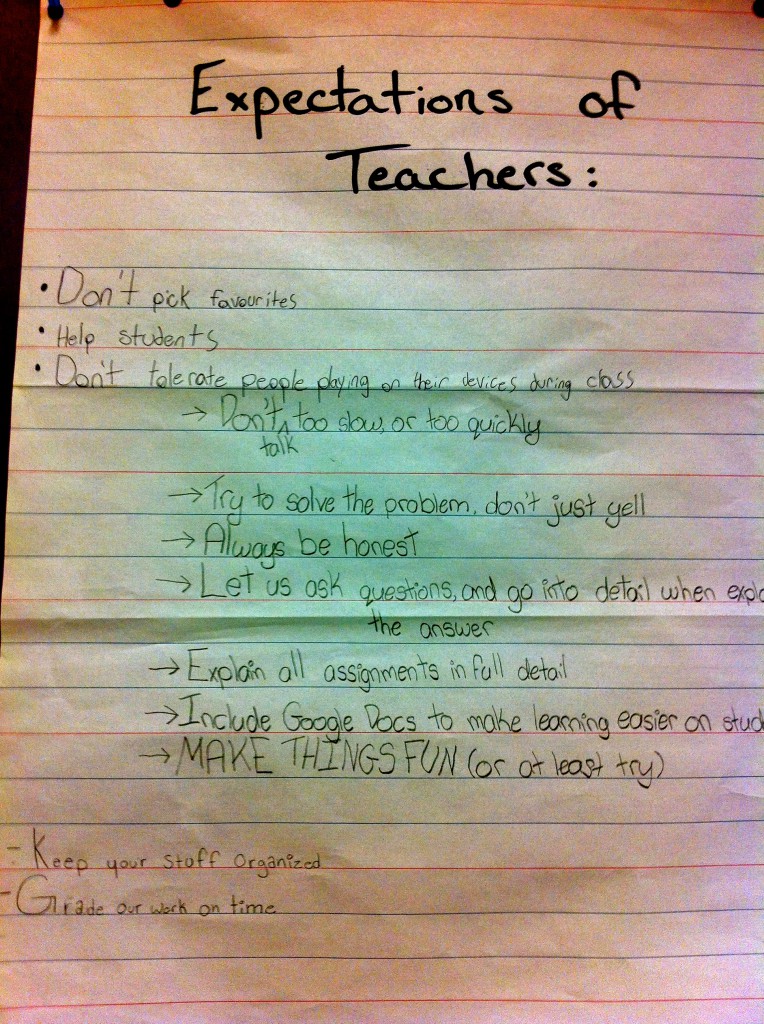 Expectations of
Teachers:
• Don't pick favourites
• Help students
• Don't tolerate people playing on their devices during class
→ Don't talk too slow, or too quickly
→ Try to solve the problem, don't just yell
→ Always be honest
→ Let us ask questions, and go into detail when
the answer
→ Explain all assignments in full detail
→ Include Google Docs to make learning easier on
→ MAKE THINGS FUN (or at least try)
- Keep your stuff organized
- Grade our work on time